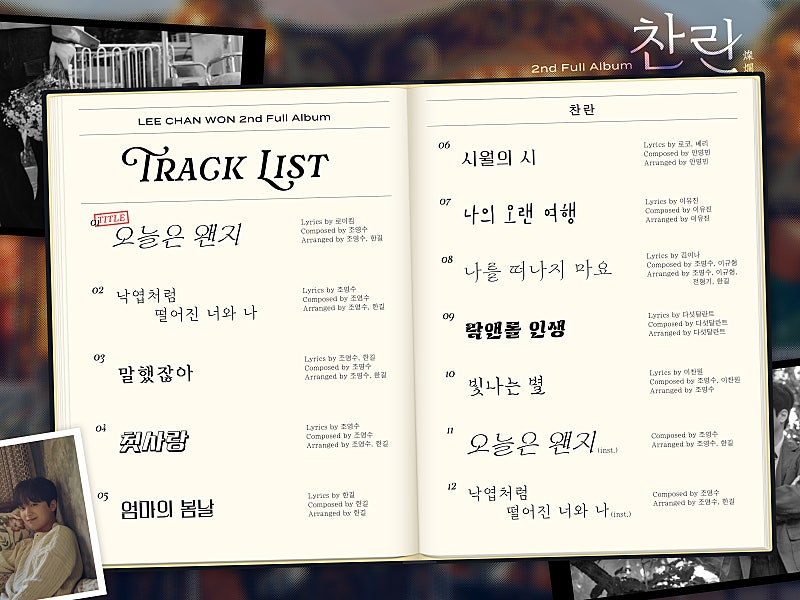 2nd Full Album 찬란
燦爛
LEE CHAN WON 2nd Full Album
TRACK LIST
01 TITLE
오늘은 왠지
Lyrics by 로이킴
Composed by 조영수
Arranged by 조영수, 한길
02 낙엽처럼
떨어진 너와 나
Lyrics by 조영수
Composed by 조영수
Arranged by 조영수, 한길
03 말했잖아
Lyrics by 조영수, 한길
Composed by 조영수
Arranged by 조영수, 한길
04 첫사랑
Lyrics by 조영수
Composed by 조영수
Arranged by 조영수, 한길
05 엄마의 봄날
Lyrics by 한길
Composed by 한길
Arranged by 한길
찬란
06 시월의 시
Lyrics by 로코, 베리
Composed by 안영민
Arranged by 안영민
07 나의 오랜 여행
Lyrics by 이유진
Composed by 이유진
Arranged by 이유진
08 나를 떠나지 마요
Lyrics by 김이나
Composed by 조영수, 이규형
Arranged by 조영수, 이규형,
전형기, 한길
09 락앤롤 인생
Lyrics by 다섯달란트
Composed by 다섯달란트
Arranged by 다섯달란트
10 빛나는 별
Lyrics by 이찬원
Composed by 조영수, 이찬원
Arranged by 조영수
11 오늘은 왠지 (inst.)
Composed by 조영수
Arranged by 조영수, 한길
12 낙엽처럼
떨어진 너와 나 (inst.)
Composed by 조영수
Arranged by 조영수, 한길